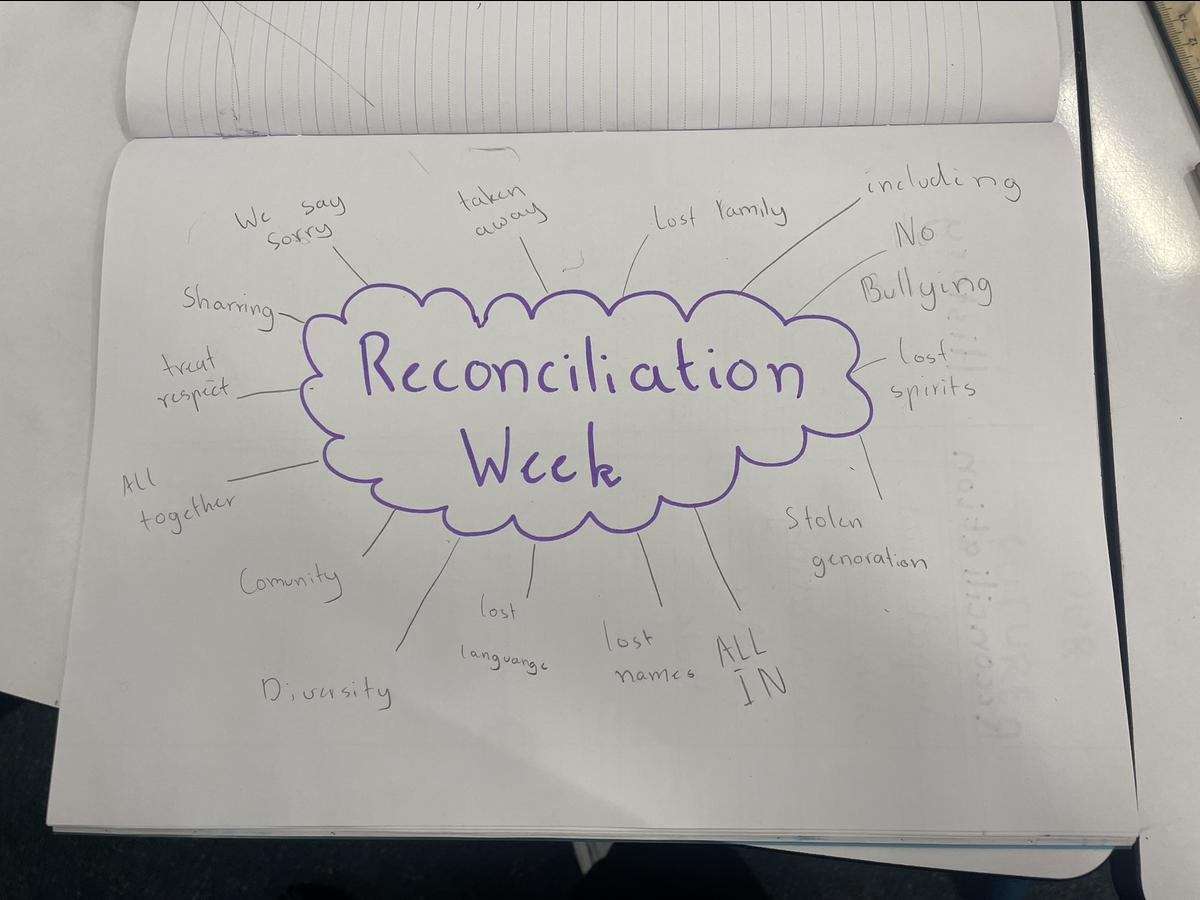 Reconciliation
Week
We say
sorry
taken
away
Lost Family
including
No
Bullying
Lost
spirits
Stolen
genoration
ALL
IN
lost
names
lost
languange
Diversity
Comunity
ALL
together
treat
respect
Sharring